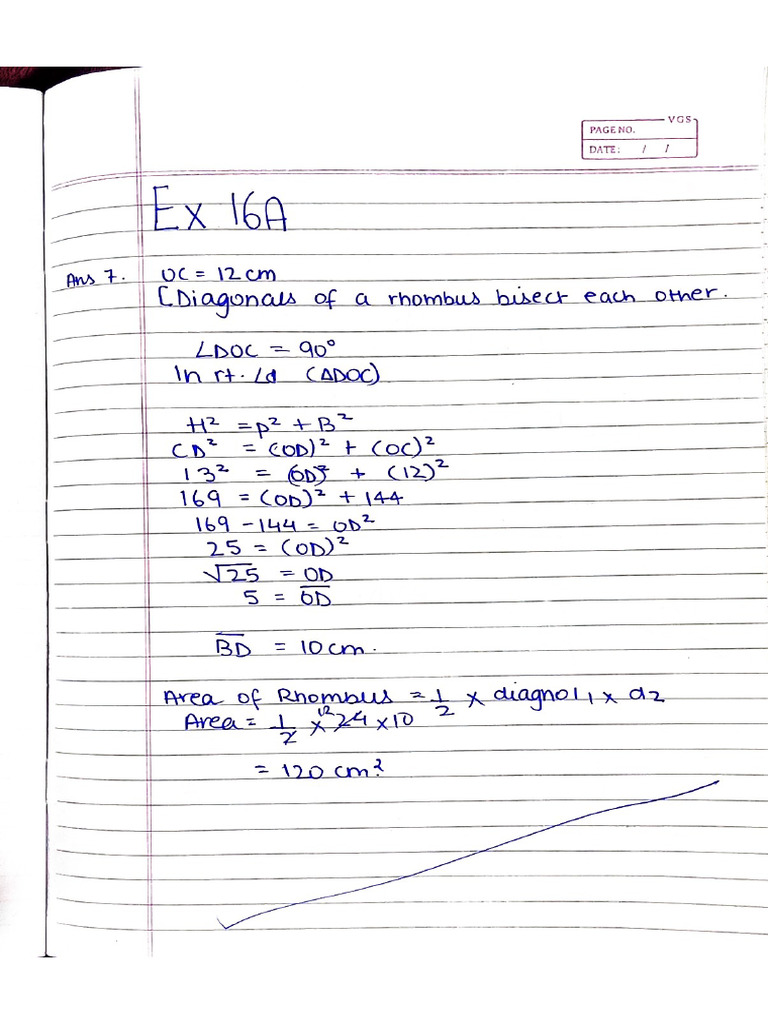 VGS
PAGE NO.
DATE: / /
Ex 16A
Ans 7. OC = 12 cm
[Diagonals of a rhombus bisect each other.
∠DOC = 90°
In rt. ∠d (ΔDOC)
H² = P² + B²
CD² = (OD)² + (OC)²
13² = (OD)² + (12)²
169 = (OD)² + 144
169 - 144 = OD²
25 = (OD)²
√25 = OD
5 = O̅D̅
B̅D̅ = 10 cm.
Area of Rhombus = 1/2 × diagnol₁ × d2
Area = 1/2 × 12 24 × 10
= 120 cm²